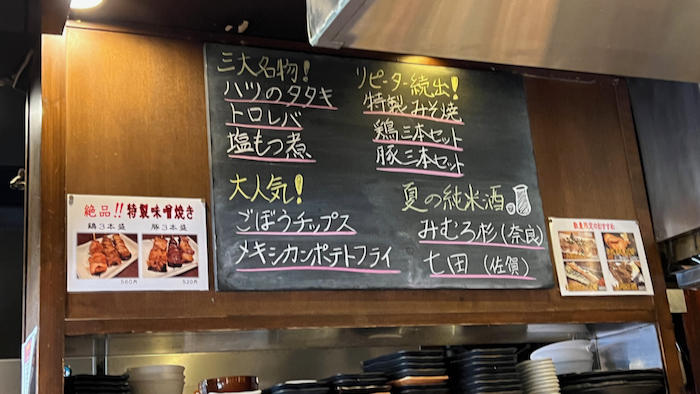 三大名物!
ハツのタタキ
トロレバ
塩もつ煮
大人気!
ごぼうチップス
メキシカンポテトフライ
リピーター続出!
特製みそ焼
鶏三本セット
豚三本セット
夏の純米酒
みむろ杉(奈良)
七田(佐賀)
絶品!!特製味噌焼き
鶏3本盛
豚3本盛
560円
520円